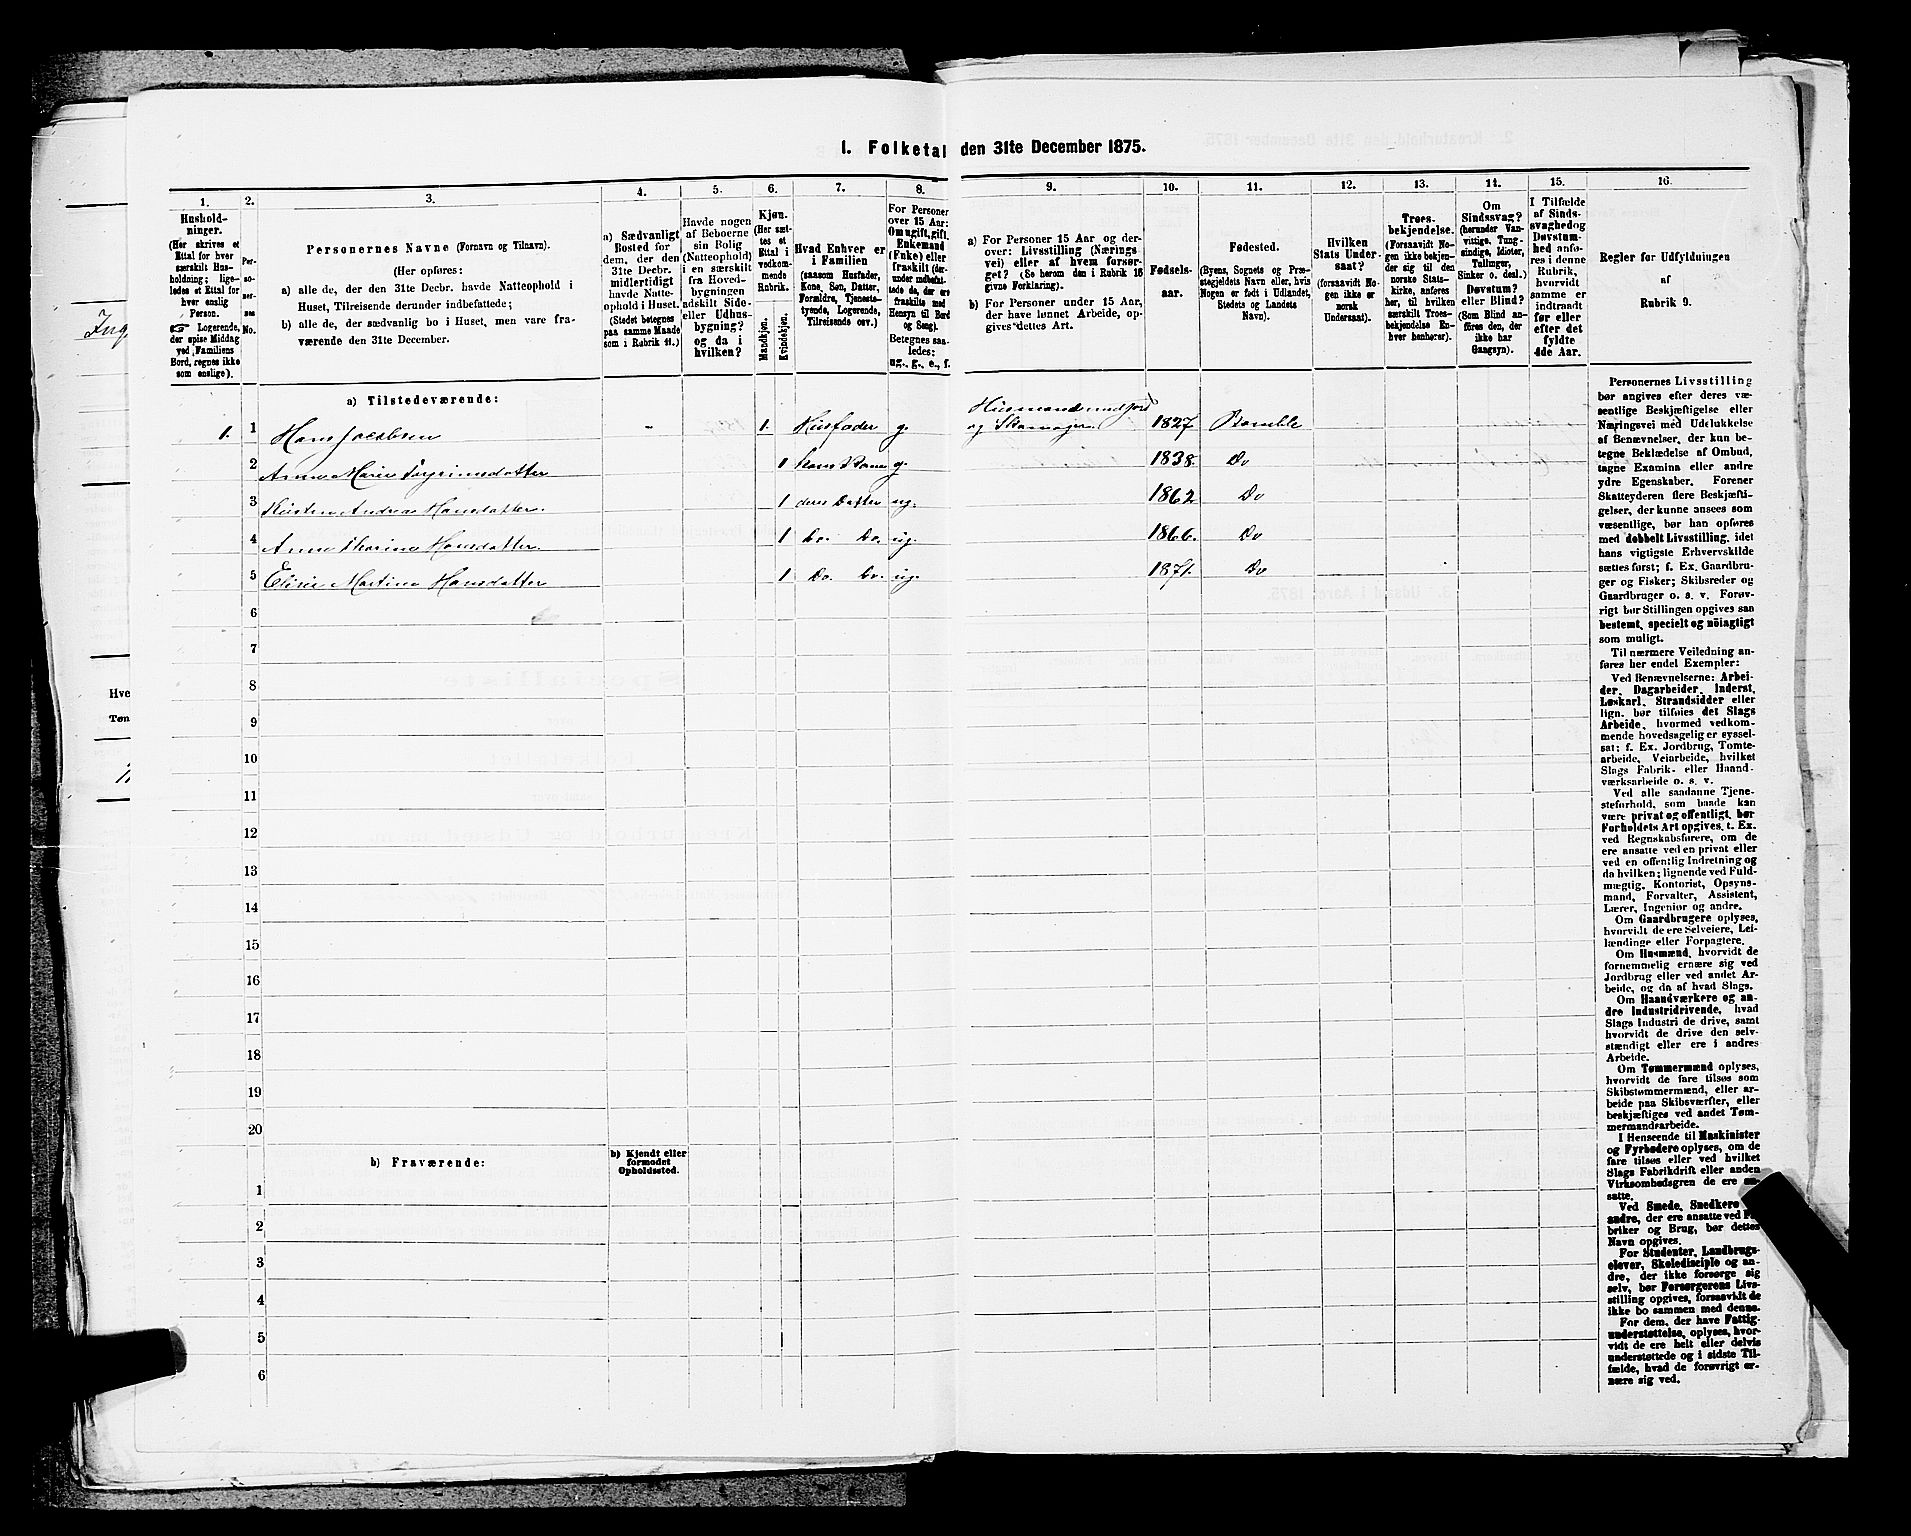 Ing
Hve
Tøn
I. Folketal den 31te December 1875.
1. 2. 3. 4. 5. 6. 7. 8. 9. 10. 11. 12. 13. 14. 15. 16.
Hushold-
ninger.
(Her skrives et
Ettal for hver
særskilt Hus-
holdning; lige-
ledes et Ettal for
hver enslig
Person.
☞ Logerende,
der spise Middag
ved Familiens
Bord, regnes ikke
som enslige).
Per-
so-
ner-
nes
No.
Personernes Navne (Fornavn og Tilnavn).
(Her opføres:
a) alle de, der den 31te Decbr. havde Natteophold i
Huset, Tilreisende derunder indbefattede;
b) alle de, der sædvanlig bo i Huset, men vare fra-
værende den 31te December.
a) Sædvanligt
Bosted for
dem, der den
31te Decbr.
midlertidigt
havde Natte-
ophold i Huset.
(Stedet betegnes
paa samme Maade
som i Rubrik 11.)
Havde nogen
af Beboerne
sin Bolig
(Natteophold)
i en særskilt
fra Hoved-
bygningen
adskilt Side-
eller Udhus-
bygning?
og da i
hvilken?
Kjøn.
(Her sæt-
tes et
Ettal i
vedkom-
mende
Rubrik.
Mandkjøn.
Kvindekjøn.
Hvad Enhver er
i Familien
(saasom Husfader,
Kone, Søn, Datter,
Forældre, Tjeneste-
tyende, Logerende,
Tilreisende osv.)
For Personer
over 15 Aar:
Om ugift, gift,
Enkemand
(Enke) eller
fraskilt (der-
under indbefat-
tede de, der ere
fraskilte med
Hensyn til Bord
og Seng).
Betegnes saa-
ledes:
ug., g., e., f.
a) For Personer 15 Aar og der-
over: Livsstilling (Nærings-
vei) eller af hvem forsør-
get? (Se herom den i Rubrik 16
givne Forklaring).
b) For Personer under 15 Aar,
der have lønnet Arbeide, op-
gives dettes Art.
Fødsels-
aar.
Fødested.
(Byens, Sognets og Præ-
stegjeldets Navn eller, hvis
Nogen er født i Udlandet,
Stedets og Landets
Navn).
Hvilken
Stats Under-
saat?
(forsaavidt No-
gen ikke er
norsk
Undersaat).
Troes-
bekjendelse.
(Forsaavidt No-
gen ikke bekjen-
der sig til den
norske Stats-
kirke, anføres
her, til hvilken
særskilt Troes-
bekjendelse En-
hver henhører).
Om
Sindssvag?
(herunder Van-
vittige, Tung-
sindige, Idioter,
Tullinger,
Sinker o. desl.)
Døvstum?
eller Blind?
(Som Blind an-
føres den, der
ikke har
Gangsyn).
I Tilfælde
af Sinds-
svaghed og
Døvstum-
hed anfø-
res i denne
Rubrik,
hvorvidt
samme er
indtraadt
før eller
efter det
fyldte
4de Aar.
Regler for Udfyldningen
af
Rubrik 9.
a) Tilstedeværende:
1. 1 Hans Jacobsen - 1. Husfader g. Husmand med Jord og Skomager. 1827 Bamble
2 Anne Marie Torgrimsdatter 1 hans Kone g. 1838. Do
3 Kirsten Andrea Hansdatter. 1 deres Datter ug. 1862 Do
4 Anne Thorine Hansdatter. 1 Do. Do. ug. 1866. Do
5 Elise Martine Hansdatter 1 Do. Do. ug. 1871. Do
6
7
8
9
10
11
12
13
14
15
16
17
18
19
20
b) Fraværende:
b) Kjendt eller
formodet
Opholdssted.
1
2
3
4
5
6
Personernes Livsstilling
bør angives efter deres væ-
sentlige Beskjæftigelse eller
Næringsvei med Udelukkelse
af Benævnelser, der kun be-
tegne Beklædelse af Ombud,
tagne Examina eller andre
ydre Egenskaber. Forener
Skatteyderen flere Beskjæfti-
gelser, der kunne ansees som
væsentlige, bør han opføres
med dobbelt Livsstilling, idet
hans vigtigste Erhvervskilde
sættes først; f. Ex. Gaardbru-
ger og Fisker; Skibsreder og
Gaardbruger o. s. v. Forøv-
rigt bør Stillingen opgives saa
bestemt, specielt og nøiagtigt
som muligt.
Til nærmere Veiledning an-
føres her endel Exempler:
Ved Benævnelserne: Arbei-
der, Dagarbeider, Inderst,
Løskarl, Strandsidder eller
lign. bør tilføies det Slags
Arbeide, hvormed vedkom-
mende hovedsagelig er syssel-
sat; f. Ex. Jordbrug, Tomte-
arbeide, Veiarbeide, hvilket
Slags Fabrik- eller Haand-
værksarbeide o. s. v.
Ved alle saadanne Tjene-
steforhold, som baade kan
være privat og offentligt, bør
Forholdets Art opgives, t. Ex.
ved Regnskabsførere, om de
ere ansatte ved en privat eller
ved en offentlig Indretning og
da hvilken; lignende ved Fuld-
mægtig, Kontorist, Opsyns-
mand, Forvalter, Assistent,
Lærer, Ingeniør og andre.
Om Gaardbrugere oplyses,
hvorvidt de ere Selveiere, Lei-
lændinge eller Forpagtere.
Om Husmænd, hvorvidt de
fornemmelig ernære sig ved
Jordbrug eller ved andet Ar-
beide, og da af hvad Slags.
Om Haandværkere og an-
dre Industridrivende, hvad
Slags Industri de drive, samt
hvorvidt de drive den selv-
stændigt eller ere i andres
Arbeide.
Om Tømmermænd oplyses,
hvorvidt de fare tilsøs som
Skibstømmermænd, eller ar-
beide paa Skibsværfter, eller
beskjæftiges ved andet Tøm-
mermandsarbeide.
I Henseende til Maskinister
og Fyrbødere oplyses, om de
fare tilsøs eller ved hvilket
Slags Fabrikdrift eller anden
Virksombedsgren de ere an-
satte.
Ved Smede, Snedkere
andre, der ere ansatte ved Fa-
briker og Brug, bør dettes
Navn opgives.
For Studenter, Landbrugs-
elever, Skoledisciple og an-
dre, der ikke forsørge sig
selv, bør Forsørgerens Livs-
stilling opgives, forsaavidt de
ikke bo sammen med denne.
For dem, der have Fattig-
understøttelse, oplyses, hvor-
vidt de ere helt eller delvis
understøttede og i sidste Til-
fælde, hvad de forøvrigt er-
nære sig ved.